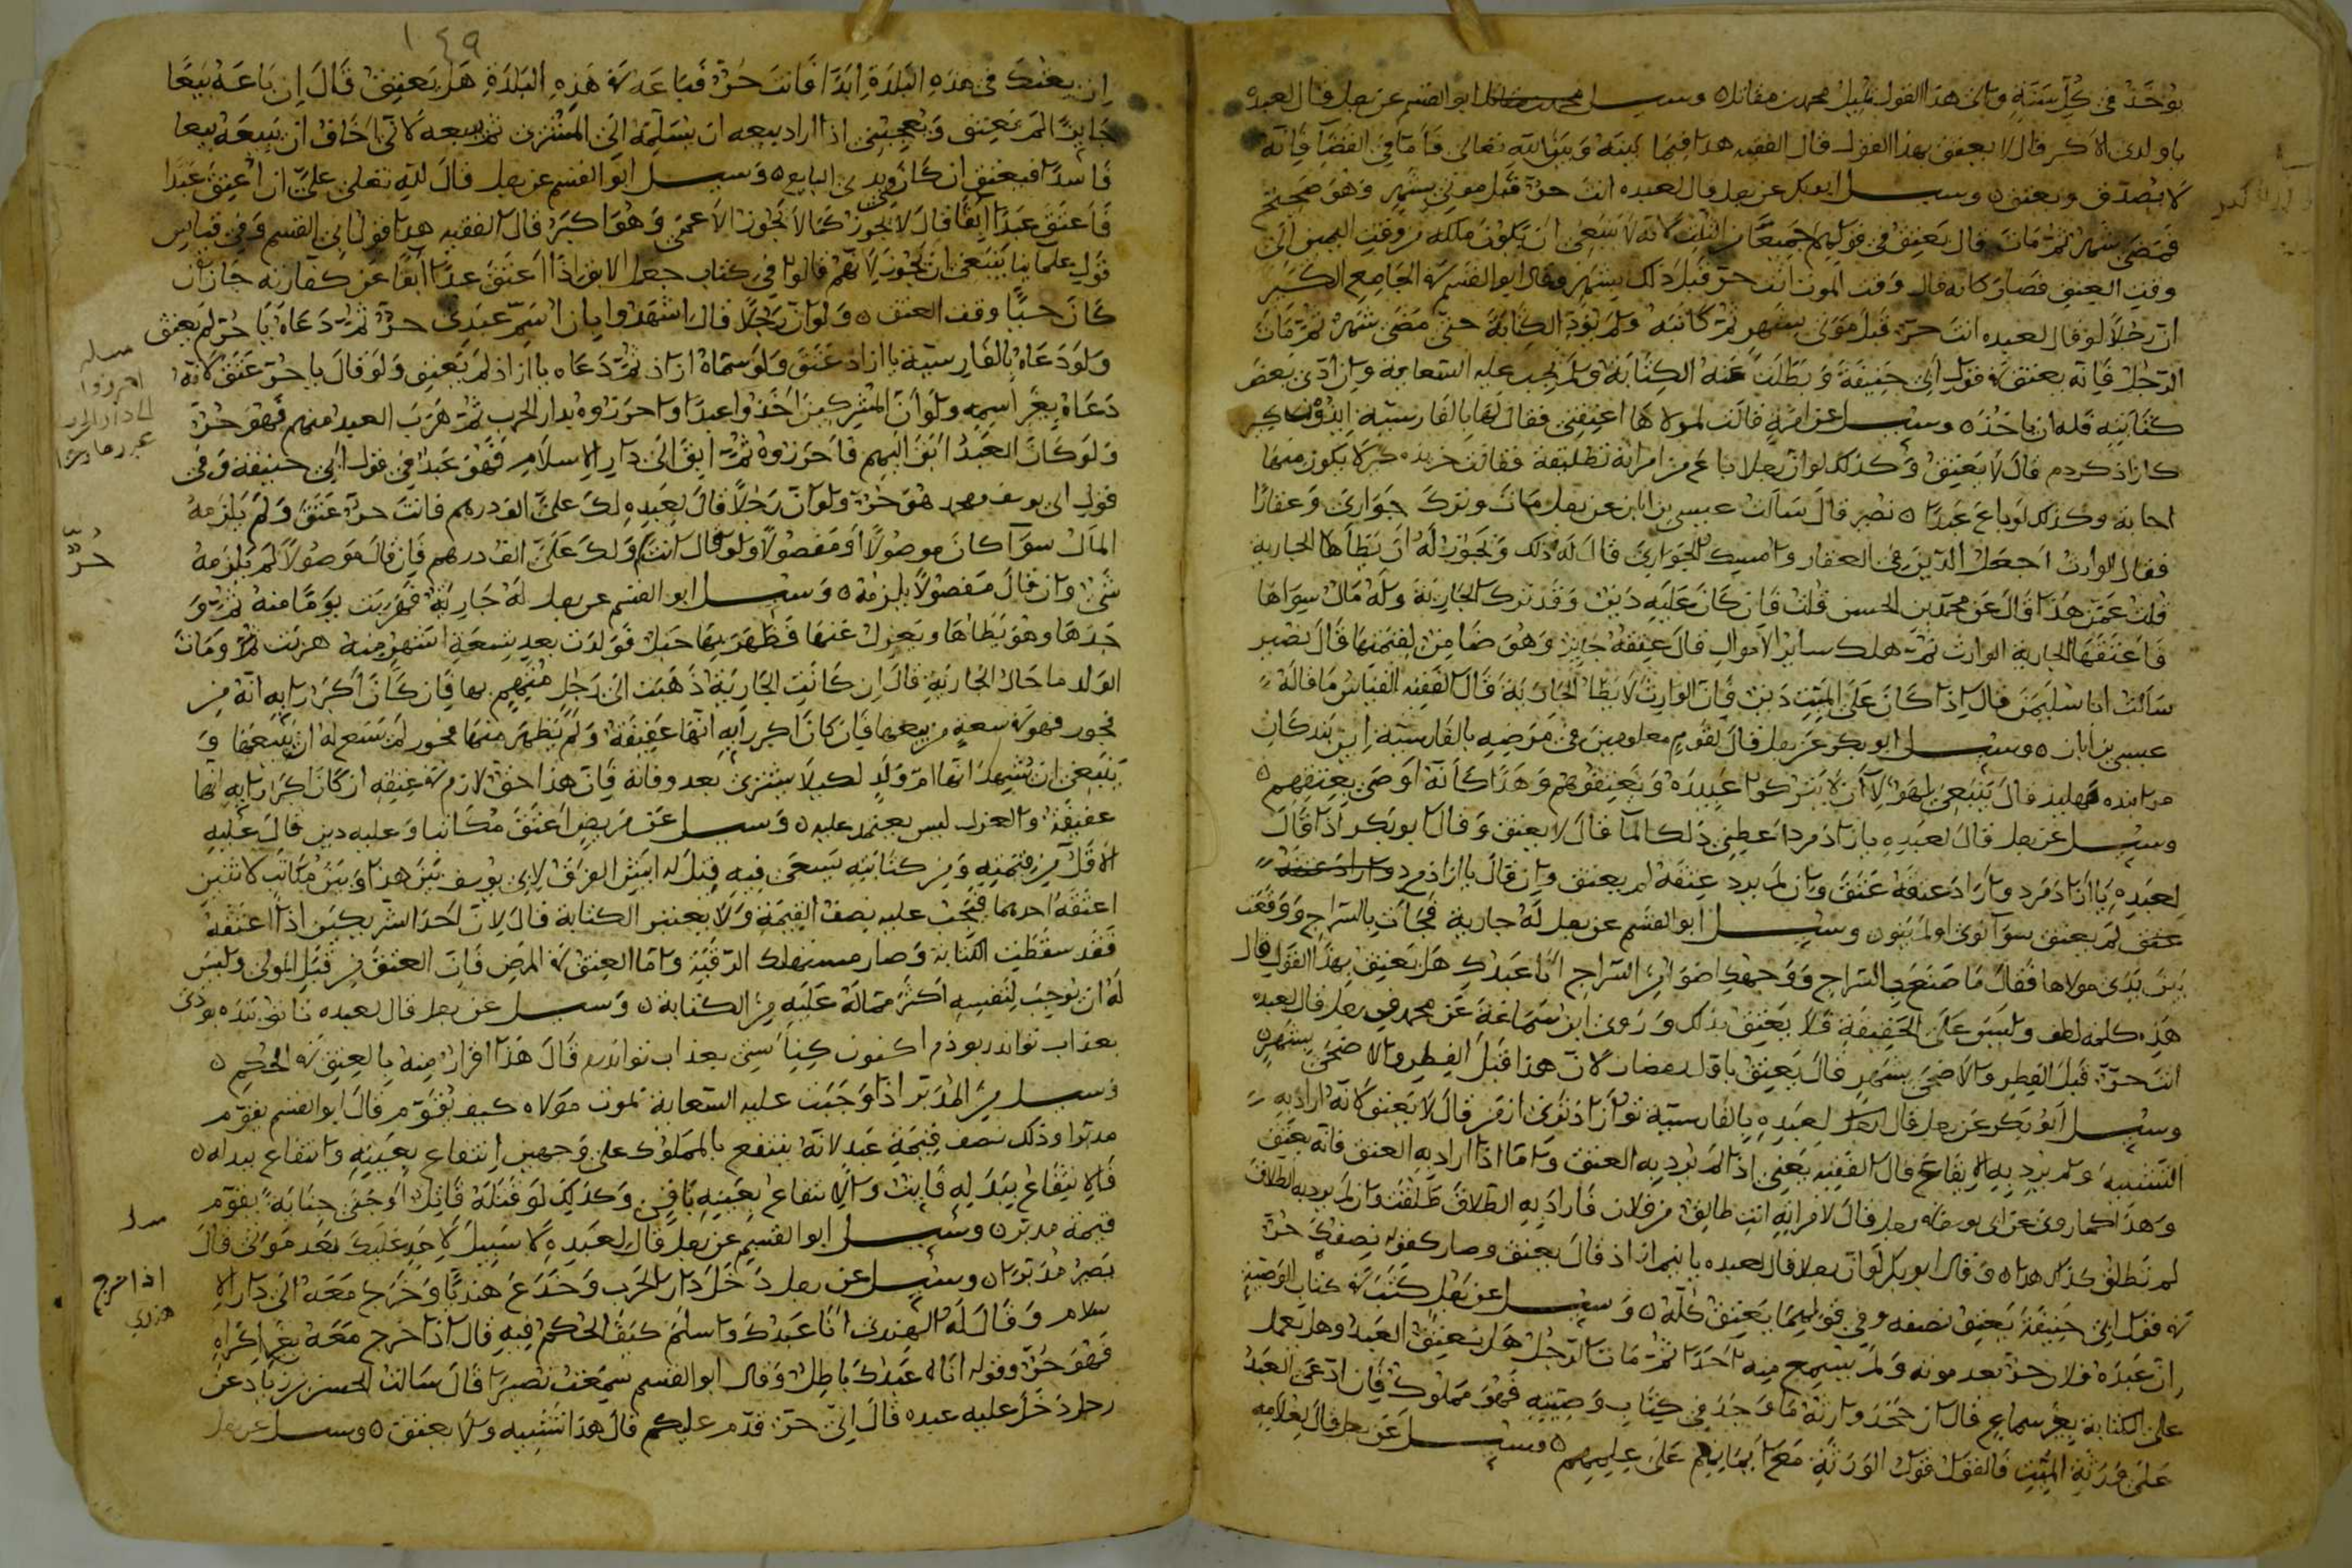 يوخذ في كل سنة والى هذا القول يميل محمد بن مقاتل وسيل ابو القسم عن رجل قال لعبده
يا ولدي الاكبر قال لا يعتق بهذا القول قال الفقيه هذا فيما بينه وبين الله تعالى فاما في القضا فانه
لا يصدق ويعتق وسيل ابو بكر عن رجل قال لعبده انت حر قبل موتي بشهر وهو صحيح
فمضى شهر ثم مات قال يعتق في قولهم جميعا من الثلث لانه لا ينبغي ان يكون ملكه من وقت اليمين الى
وقت العتق فصار كانه قال وقت الموت انت حر قبل ذلك بشهر وقال ابو القسم في الجامع الكبير
ان رجلا لو قال لعبده انت حر قبل موتي بشهر ثم كاتبه ولم يود الكتابة حتى مضى شهر ثم مات
الرجل فانه يعتق في قول ابي حنيفة وبطلت عنه الكتابة ولم يجب عليه السعاية وان ادى بعض
كتابته فله ان ياخذه وسيل عن امة قالت لمولاها اعتقني فقال لها بالفارسية
كازاذ كردم قال لا يعتق وكذلك لو ان رجلا باع من امراته تطليقة فقالت خريدم لا يكون منها
اجابة وكذلك لو باع عبدا نصير قال سالت عيسى بن ابان عن رجل مات وترك جواري وعقارا
فقال الوارث اجعل الدين في العقار وامسك الجواري قال له ذلك ويجوز له ان يطاها الجارية
قلت عمن هذا قال عن محمد بن الحسن قلت فان كان عليه دين وقد ترك الجارية وله مال سواها
فاعتقها الجارية الوارث ثم هلك ساير الاموال قال عتقه جايز وهو ضامن لقيمتها قال نصير
سالت ابا سليمن قال اذا كان على الميت دين فان الوارث لا يطا الجارية قال الفقيه القياس ما قاله
عيسى بن ابان وسيل ابو بكر عن رجل قال لقوم معلومين في مرضه بالفارسية اين بندكان
مرا بنده مهليذ قال ينبغي لهولا ان لا يتركوا عبيده ويعتقوهم وهذا كانه اوصى بعتقهم
وسيل عن رجل قال لعبده يا ازاذ مرد اعطني ذلك الما قال لا يعتق وقال ابو بكر اذا قال
لعبده يا ازاذ مرد واراد عتقه عتق وان لم يرد عتقه لم يعتق وان قال يا ازاذ مرد واراد عتقه
عتق لم يعتق سوا نوى او لم ينو وسيل ابو القسم عن رجل له جارية فجات بالسراج ووقفت
بين يدي مولاها فقال ما صنع السراج ووجهك اضوا من السراج انا عبدك هل يعتق بهذا القول قال
هذه كلمة لطف وليس على الحقيقة فلا يعتق بذلك وروى ابن سماعة عن محمد في رجل قال لعبده
انت حر قبل الفطر والاضحى بشهر قال يعتق باول رمضان لان هذا قبل الفطر والاضحى بشهر
وسيل ابو بكر عن رجل قال لعبده بالفارسية تو ازاذ تري از من قال لا يعتق لانه اراد به
التشبيه ولم يرد به الايقاع قال الفقيه يعني اذا لم يرد به العتق واما اذا اراد به العتق فانه يعتق
وهذا كما روي عن ابي يوسف في رجل قال لامراته انت طالق من فلان فاراد به الطلاق طلقت وان لم يرد به الطلاق
لم تطلق كذلك هذا وقال ابو بكر لو ان رجلا قال لعبده يا نيم ازاذ قال يعتق وصار كقوله نصفك حر
في قول ابي حنيفة يعتق نصفه وفي قولهما يعتق كله وسيل عن رجل كتب في كتاب الوصية
ان عبده فلان حر بعد موته ولم يسمع منه احدا ثم مات الرجل هل يعتق العبد وهل يعمل
على الكتابة بغير سماع قال ان جحد وارثه ما وجد في كتاب وصيته فهو مملوك فان ادعى العبد
على ورثة الميت فالقول قول الورثة مع ايمانهم على علمهم وسيل عن رجل قال لغلامه
١٤٩
ان بعتك في هذه البلدة ابدا فانت حر فباعه في هذه البلدة هل يعتق قال ان باعه بيعا
جايزا لم يعتق ويعجبني اذا اراد بيعه ان يسلمه الى المشتري ثم يبيعه لاني اخاف ان يبيعه بيعا
فاسدا فيعتق ان كان في يدي البايع وسيل ابو القسم عن رجل قال لله تعالى علي ان اعتق عبدا
فاعتق عبدا ابقا قال لا يجوز كما لا يجوز الاعمى وهو اكبر قال الفقيه هذا قول ابي القسم وفي قياس
قول علماينا ينبغي ان يجوز لانهم قالوا في كتاب جعل الابق اذا اعتق عبدا ابقا عن كفارته جاز ان
كان حيا وقت العتق ولو ان رجلا قال اشهدوا بان اسم عبدي حر ثم دعاه يا حر لم يعتق
ولو دعاه بالفارسية يا ازاذ عتق ولو سماه ازاذ ثم دعاه يا ازاذ لم يعتق ولو قال يا حر عتق لانه
دعاه بغير اسمه ولو ان المشركين اخذوا عبدا واحرزوه بدار الحرب ثم هرب العبد منهم فهو حر
ولو كان العبد ابق اليهم فاحرزوه ثم ابق الى دار الاسلام فهو عبد في قول ابي حنيفة وفي
قول ابي يوسف ومحمد هو حر ولو ان رجلا قال لعبده لك علي الف درهم فانت حر عتق ولم يلزمه
المال سوا كان موصولا او مفصولا ولو قال انت حر ولك علي الف درهم فان قال موصولا لم يلزمه
شي وان قال مفصولا يلزمه وسيل ابو القسم عن رجل له جارية فهربت يوما منه ثم و
جدها وهو يطاها ويعزل عنها فظهر بها حبل فولدت بعد تسعة اشهر منذ هربت ومات
الولد ما حال الجارية قال ان كانت الجارية ذهبت الى رجل متهم بها فان كان اكبر رايه انه من
فجور فهو في سعة من بيعها فان كان اكبر رايه انها عفيفة ولم يظهر منها فجور لم يسع له ان يبيعها و
ينبغي ان يشهد انها ام ولد لكيلا يشترى بعد وفاته فان هذا حق لازم في عنقه ان كان اكبر رايه انها
عفيفة والعزل ليس يعتمد عليه وسيل عن مريض اعتق مكاتبا وعليه دين قال عليه
الاقل من قيمته ومن كتابته يسعى فيه قيل له ايش الفرق لابي يوسف بين هذا وبين مكاتب لاثنين
اعتقه احدهما فيجب عليه نصف القيمة ولا يعتبر الكتابة قال لان احد الشريكين اذا اعتقه
فقد سقطت الكتابة وصار مستهلك الرقبة واما العتق في المرض فان العتق من قبل المولى وليس
له ان يوجب لنفسه اكثر مما له عليه من الكتابة وسيل عن رجل قال لعبده تا تو بنده بوذي
بعذاب تو اندر بوذم اكنون بعذاب تو اندرم قال هذا اقرار منه بالعتق في الحكم
وسيل عن المدبر اذا وجبت عليه السعاية بموت مولاه كيف يقوم قال ابو القسم يقوم
مدبرا وذلك نصف قيمة عبد لانه ينتفع بالمملوك على وجهين انتفاع بعينه وانتفاع ببدله
فالانتفاع ببدله فايت والانتفاع بعينه باقي وكذلك لو قتله قاتل او جنى جناية يقوم
قيمة مدبر وسيل ابو القسم عن رجل قال لعبده لا سبيل لاحد عليك بعد موتي قال
يصير مدبرا وسيل عن رجل دخل دار الحرب وخدع هنديا وخرج معه الى دار الا
سلام وقال له الهندي انا عبدك واسلم كيف الحكم فيه قال اذا خرج معه بغير اكراه
فهو حر وقوله انا عبدك باطل وقال ابو القسم سمعت نصيرا قال سالت الحسن بن زياد عن
رجل دخل عليه عبده قال اني حر قدم عليكم قال هذا تشبيه ولا يعتق وسيل عن رجل
حر
اذا خرج
هندي